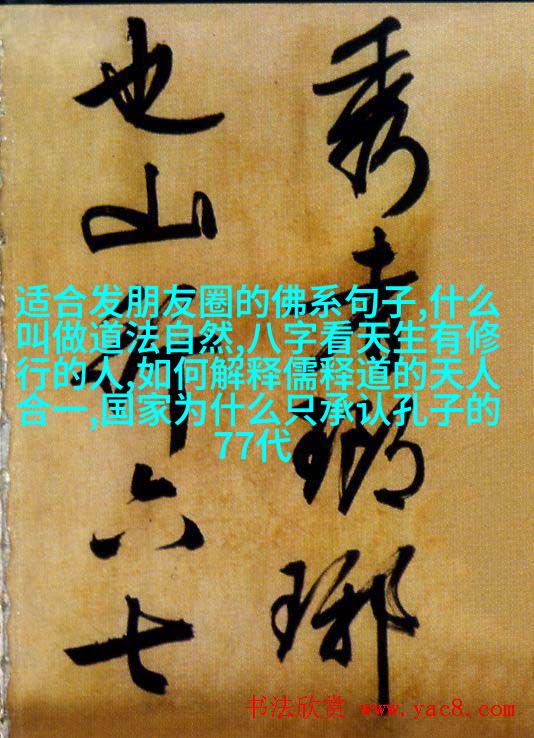 秀者瑯琊
也山行六七
适合发朋友圈的佛系句子,什么
叫做道法自然,八字看天生有修
行的人,如何解释儒释道的天人
合一,国家为什么只承认孔子的
77代
书法欣赏 www.yac8.com